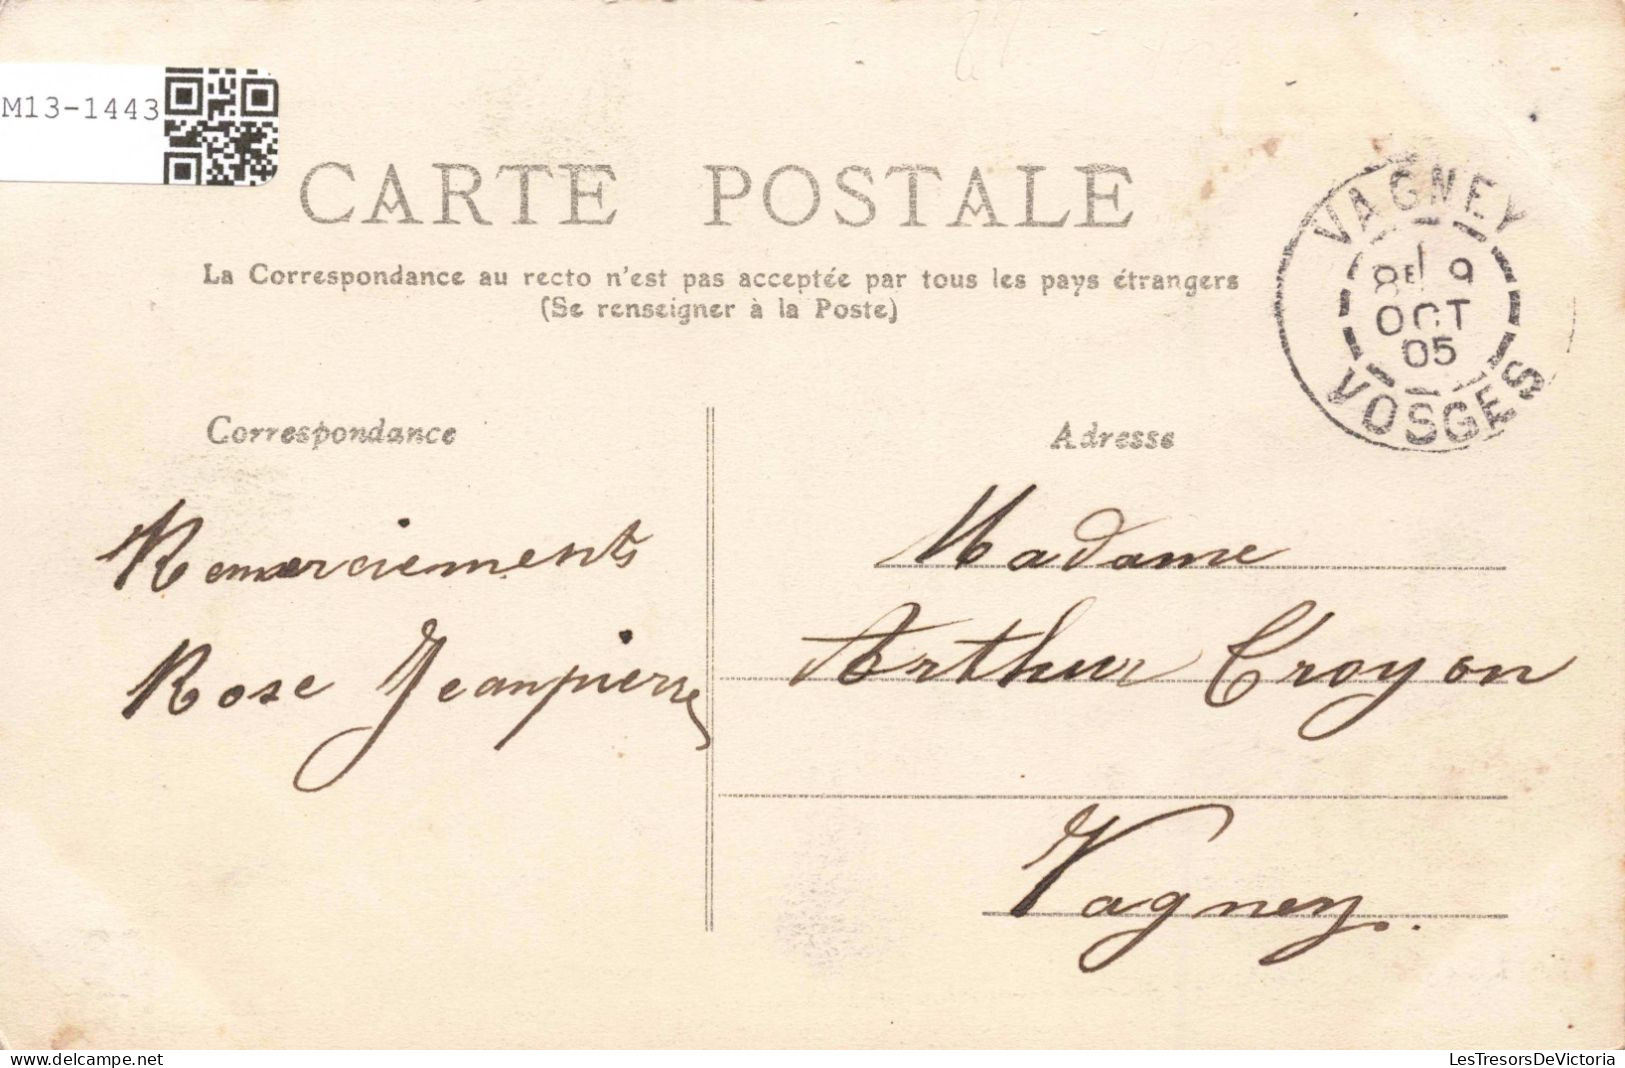 M13-1443
CARTE POSTALE
La Correspondance au recto n'est pas acceptée par tous les pays étrangers
(Se renseigner à la Poste)
VAGNEY
8E 9
OCT
05
VOSGES
Correspondance
Remerciements
Rose Jeanpierre
Adresse
Madame
Arthur Croyon
Vagney.
delcampe.net
LesTresorsDeVictoria